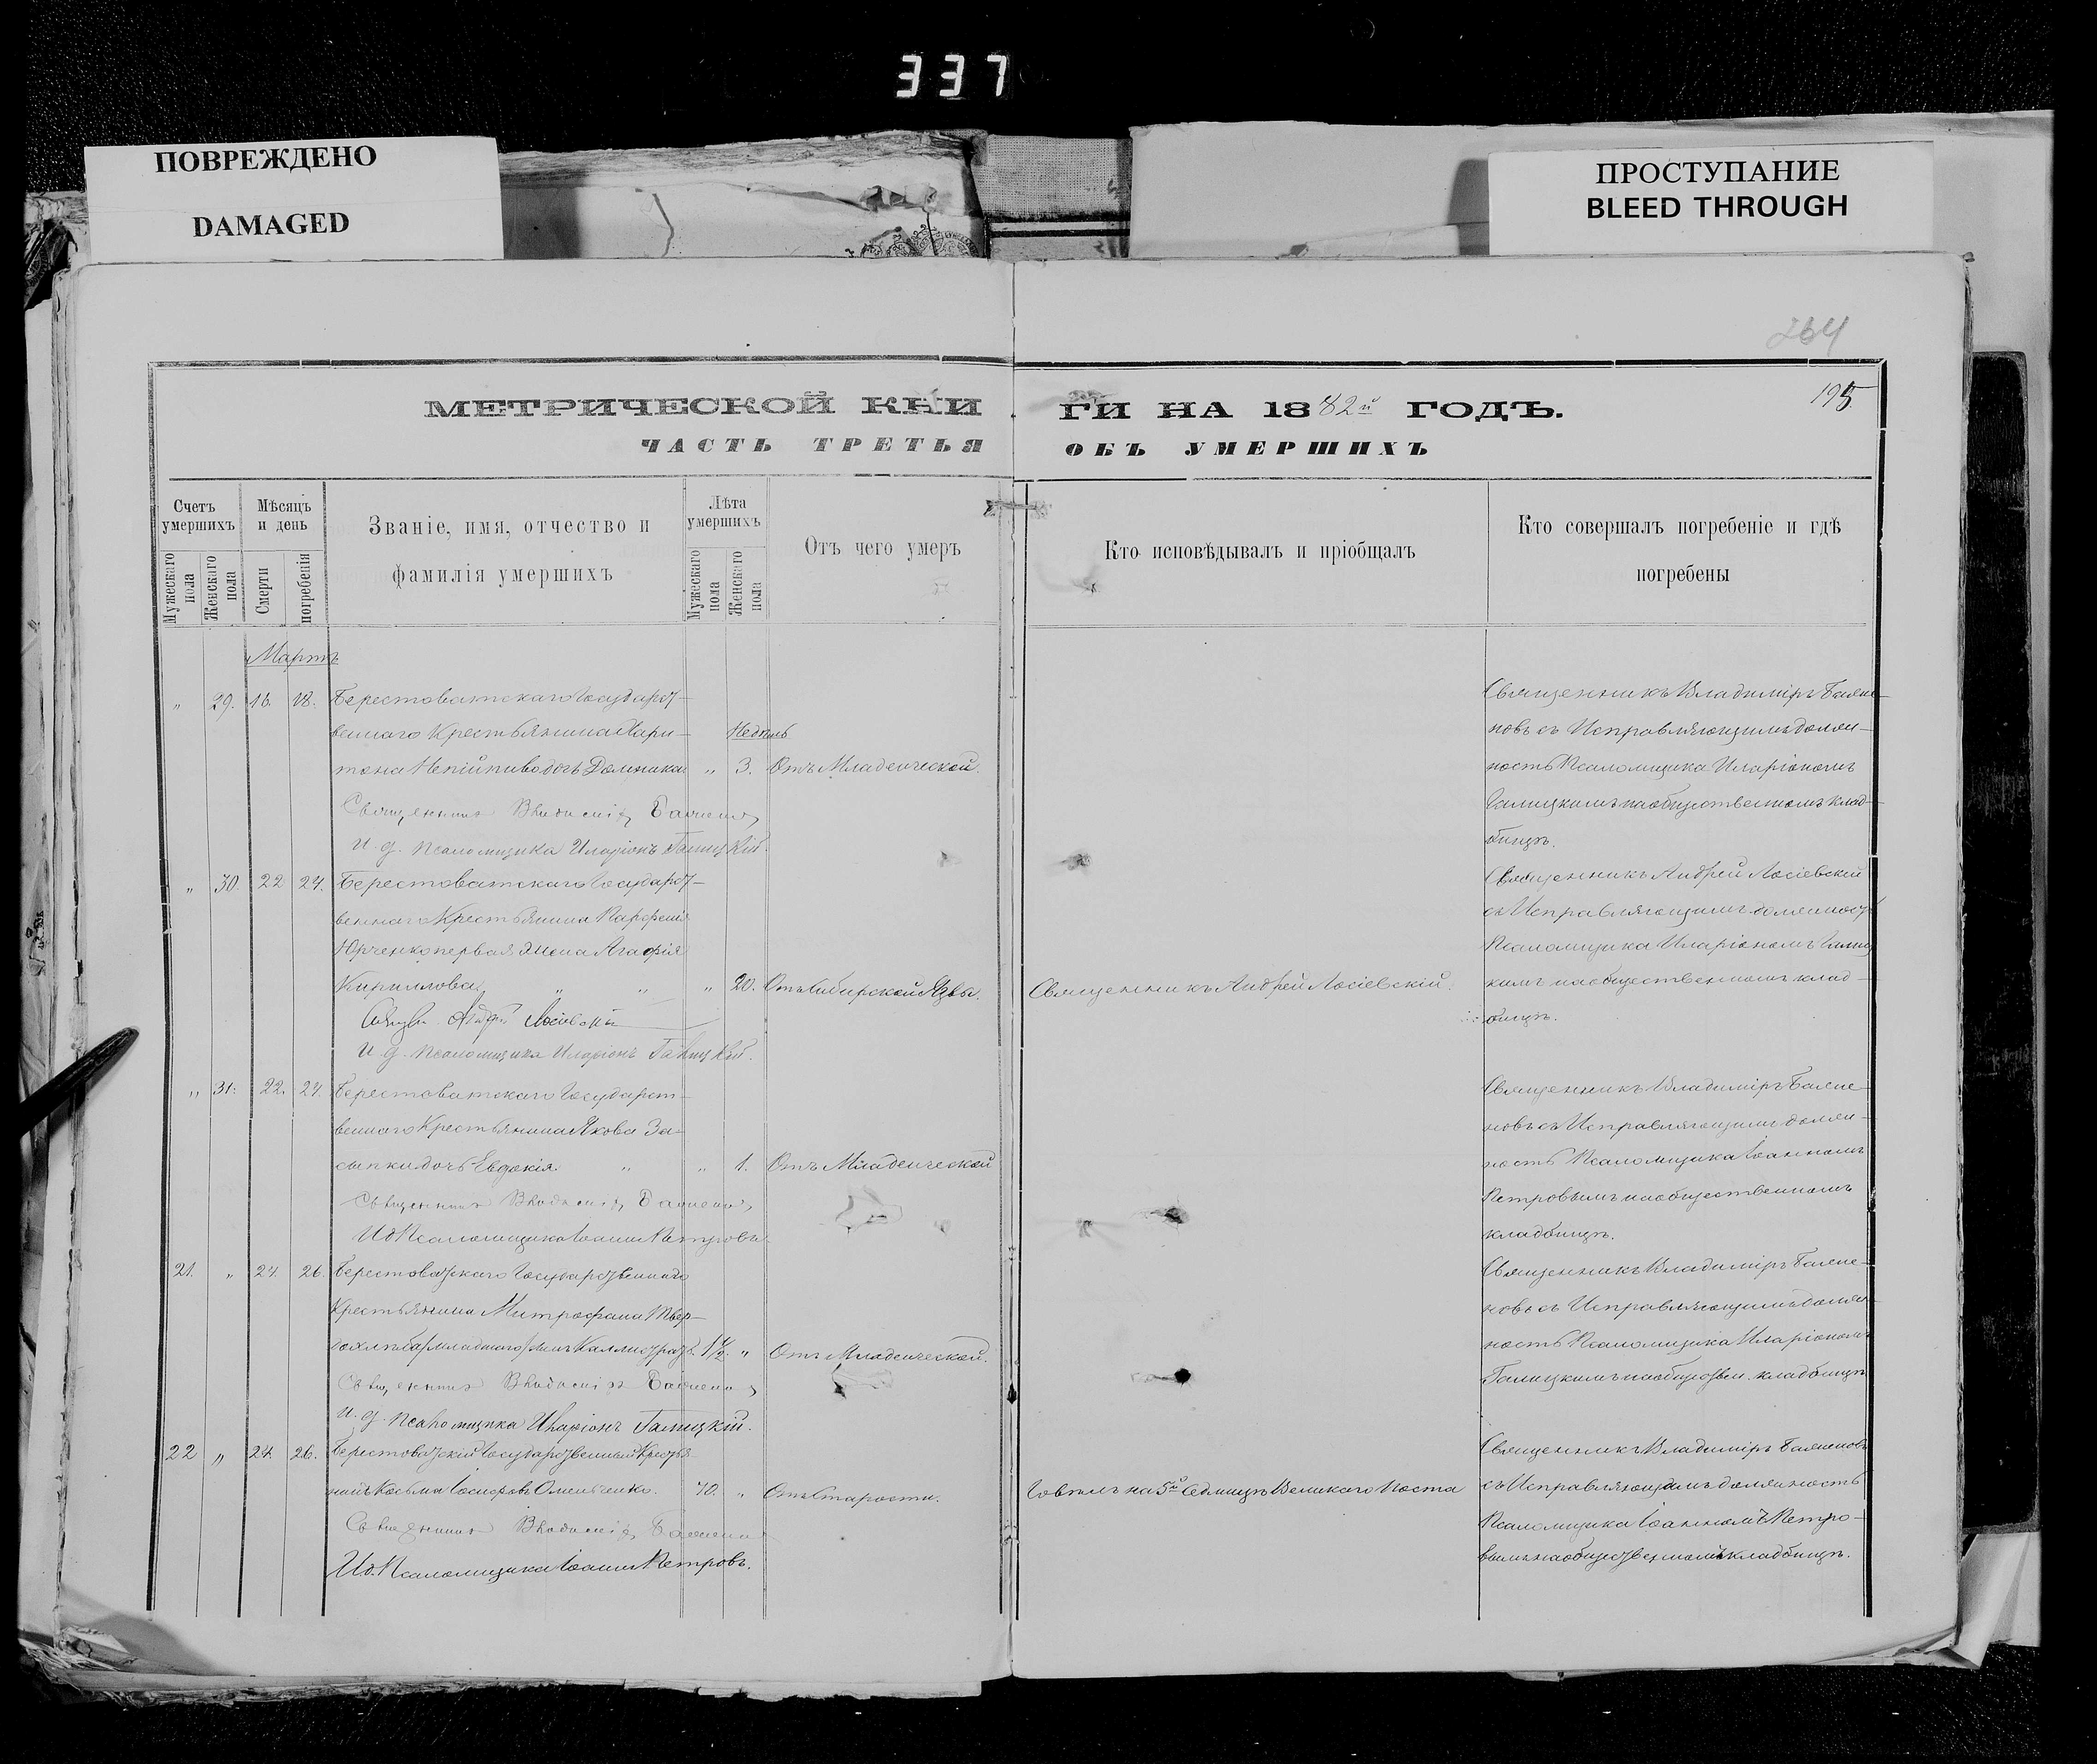 337
ПОВРЕЖДЕНО
DAMAGED
ПРОСТУПАНИЕ
BLEED THROUGH
264
195.
МЕТРИЧЕСКОЙ КНИ ГИ НА 1882й ГОДЪ.
ЧАСТЬ ТРЕТЬЯ ОБЪ УМЕРШИХЪ
Счетъ умершихъ
Мужескаго пола
Женскаго пола
Мѣсяцъ и день
Смерти
погребенія
Званіе, имя, отчество и
фамилія умершихъ
Лѣта умершихъ
Мужескаго пола
Женскаго пола
Отъ чего умеръ
Кто исповѣдывалъ и пріобщалъ
Кто совершалъ погребеніе и гдѣ
погребены
Мартъ
" 29. 16. 18. Берестоватскаго Государст-
веннаго Крестьянина Хари-
Недѣль
тона Непійпиво дочь Домника " 3. Отъ Младенческой.
Священникъ Владиміръ
И. д. псаломщика Иларіонъ Галицкій.
Священникъ Владиміръ
новъ съ Исправляющимъ долж-
ность Псаломщика Иларіономъ
Галицкимъ на общественномъ клад-
бищѣ.
" 30. 22 24. Берестоватскаго Государст-
веннаго Крестьянина Парфенія
Юрченко первая жена Агафія
Кириллова " " " 20. Отъ Сибирской Язвы.
Андрей Лосіевскій
И. д. псаломщика Иларіонъ Галицкій.
Священникъ Андрей Лосіевскій.
Священникъ Андрей Лосіевскій
съ Исправляющимъ должность
Псаломщика Иларіономъ Галиц
кимъ на общественномъ клад-
бищѣ.
" 31. 22. 24. Берестоватскаго Государст-
веннаго Крестьянина Якова За-
сыпки дочь Евдокія " " 1. Отъ Младенческой
Священникъ Владиміръ
И д Псаломщика Іоаннъ Петровъ.
Священникъ Владиміръ
новъ съ Исправляющимъ долж-
ность Псаломщика Іоанномъ
Петровымъ на общественномъ
кладбищѣ.
21. " 24. 26. Берестоватскаго Государственнаго
Крестьянина Митрофана Твер-
дохлѣба/младшаго/сынъ Каллистратъ. 1 1/2. " Отъ Младенческой.
Священникъ Владиміръ
И. д. псаломщика Иларіонъ Галицкій.
Священникъ Владиміръ
новъ съ Исправляющимъ долж-
ность Псаломщика Иларіономъ
Галицкимъ на обществен. кладбищѣ
22 " 24. 26. Берестоватскій Государственный Крестья-
нинъ Косьма Іосифовъ Омельченко. 70. " Отъ Старости.
Священникъ Владиміръ
И д. Псаломщика Іоаннъ Петровъ.
Говѣлъ на 5й Седмицѣ Великаго Поста
Священникъ Владиміръ
съ Исправляющимъ должность
Псаломщика Іоанномъ Петро-
вымъ на общественномъ кладбищѣ.